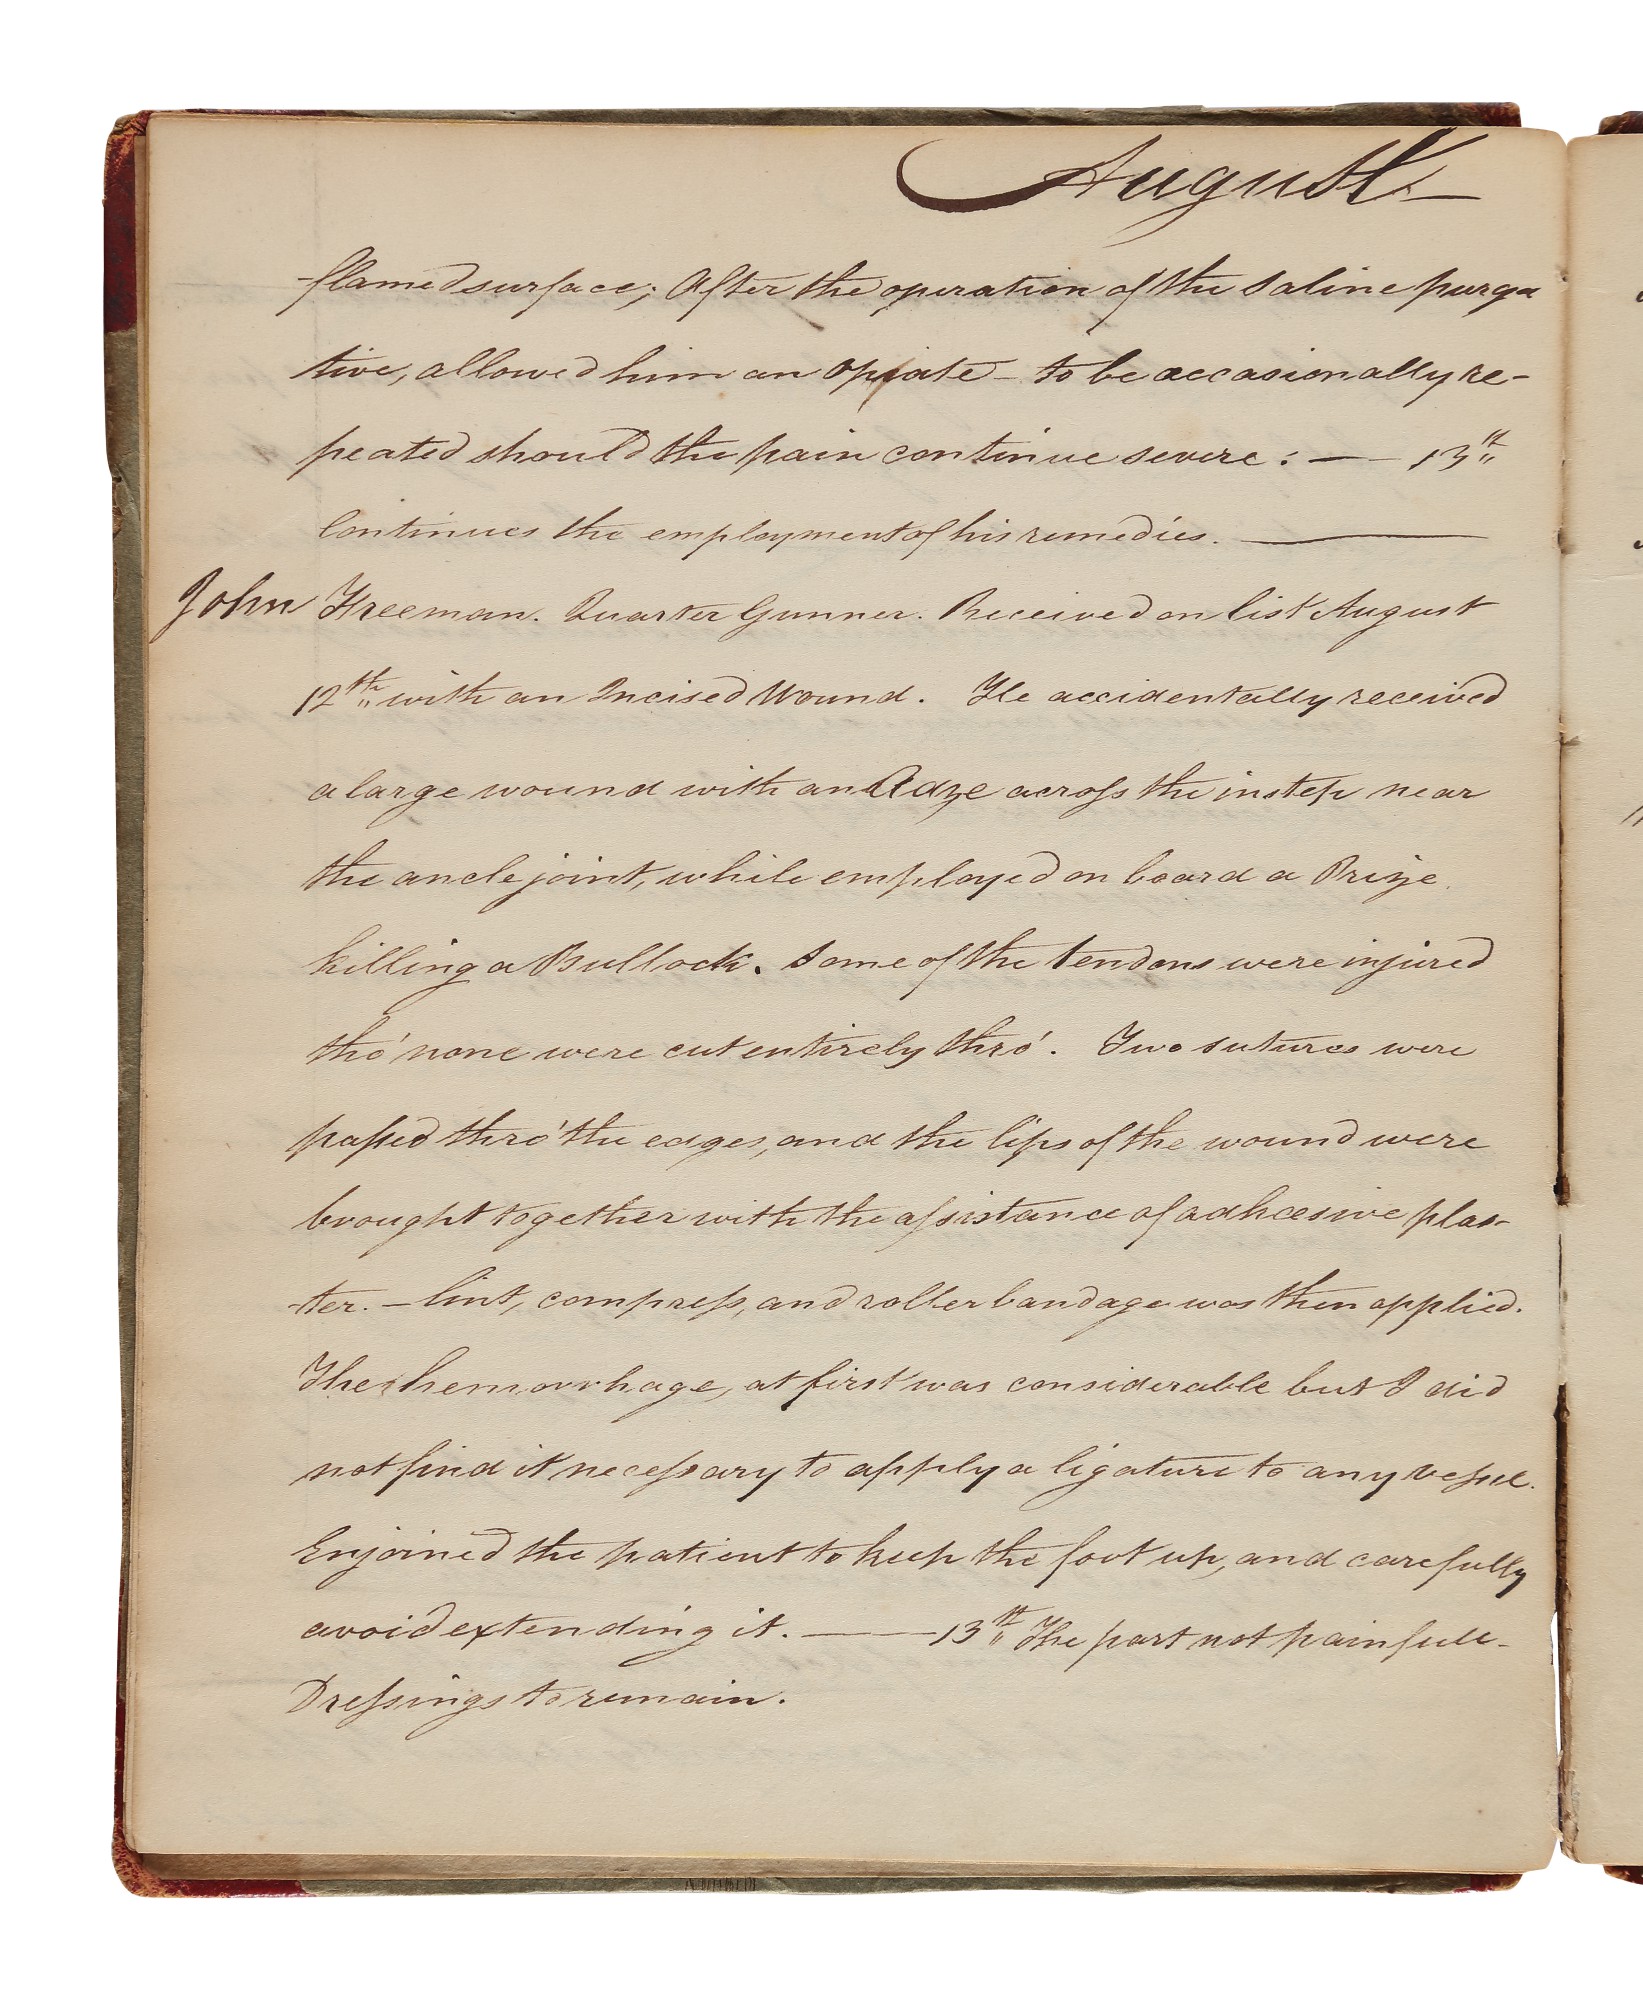 August
flamed surface; After the operation of the saline purga
tive, allowed him an opiate - to be occasionally re-
peated should the pain continue severe: — 13th
Continues the employment of his remedies. —
John Freeman. Quarter Gunner. Received on list August
12th with an Incised Wound. He accidentally received
a large wound with an Adze across the instep near
the ancle joint, while employed on board a Prize
killing a Bullock. Some of the tendons were injured
tho' none were cut entirely thro'. Two sutures were
passed thro' the edges, and the lips of the wound were
brought together with the assistance of adhæsive plas-
-ter. - lint, compress, and roller bandage was then applied.
The hemorrhage, at first was considerable but I did
not find it necessary to apply a ligature to any vessel.
Enjoined the patient to keep the foot up, and carefully
avoid extending it. — 13th The part not painfull-
Dressings to remain.